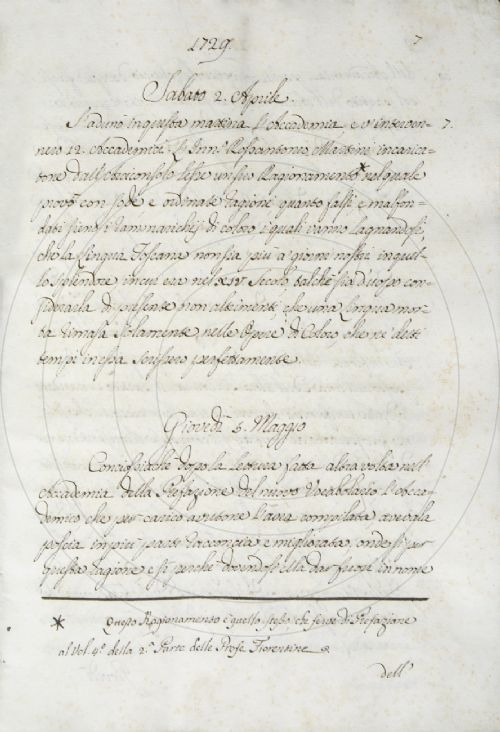 1729. 7
Sabato 2. Aprile.
S'adunò in questa mattina l'Accademia, e v'interven- 7.
nero 12. Accademici. Il Inn.º Rosantonio Martini incarica-
tone dall'Arciconsolo lesse un suo Ragionamento* nel quale
provò con sode e ordinate ragioni quanto falsi e malfon-
dati sieno i rammarichij di coloro i quali vanno lagnandosi,
che la Lingua Toscana non sia più a' giorni nostri in quel-
lo splendore in cui era nel XIV Secolo, talchè sia d'uopo con-
siderarla di presente non altrimenti che una Lingua mor-
ta rimasa solamente nelle Opere di Coloro che ne' detti
tempi in essa scrissero perfettamente.
Giovedì 5. Maggio
Conciosiachè dopo la lettura fatta altra volta nell'
Accademia della Prefazione del nuovo Vocabolario l'Acca-
demico che per carico avutone l'avea compilata avevala
poscia in più parti racconcia e migliorata, onde sì per
questa ragione e sì perchè dovendosi ella dar fuori in nome
* Questo Ragionamento è quello stesso che serve di Prefazione
al Vol. 4º della 2ª Parte delle Prose Fiorentine
dell'